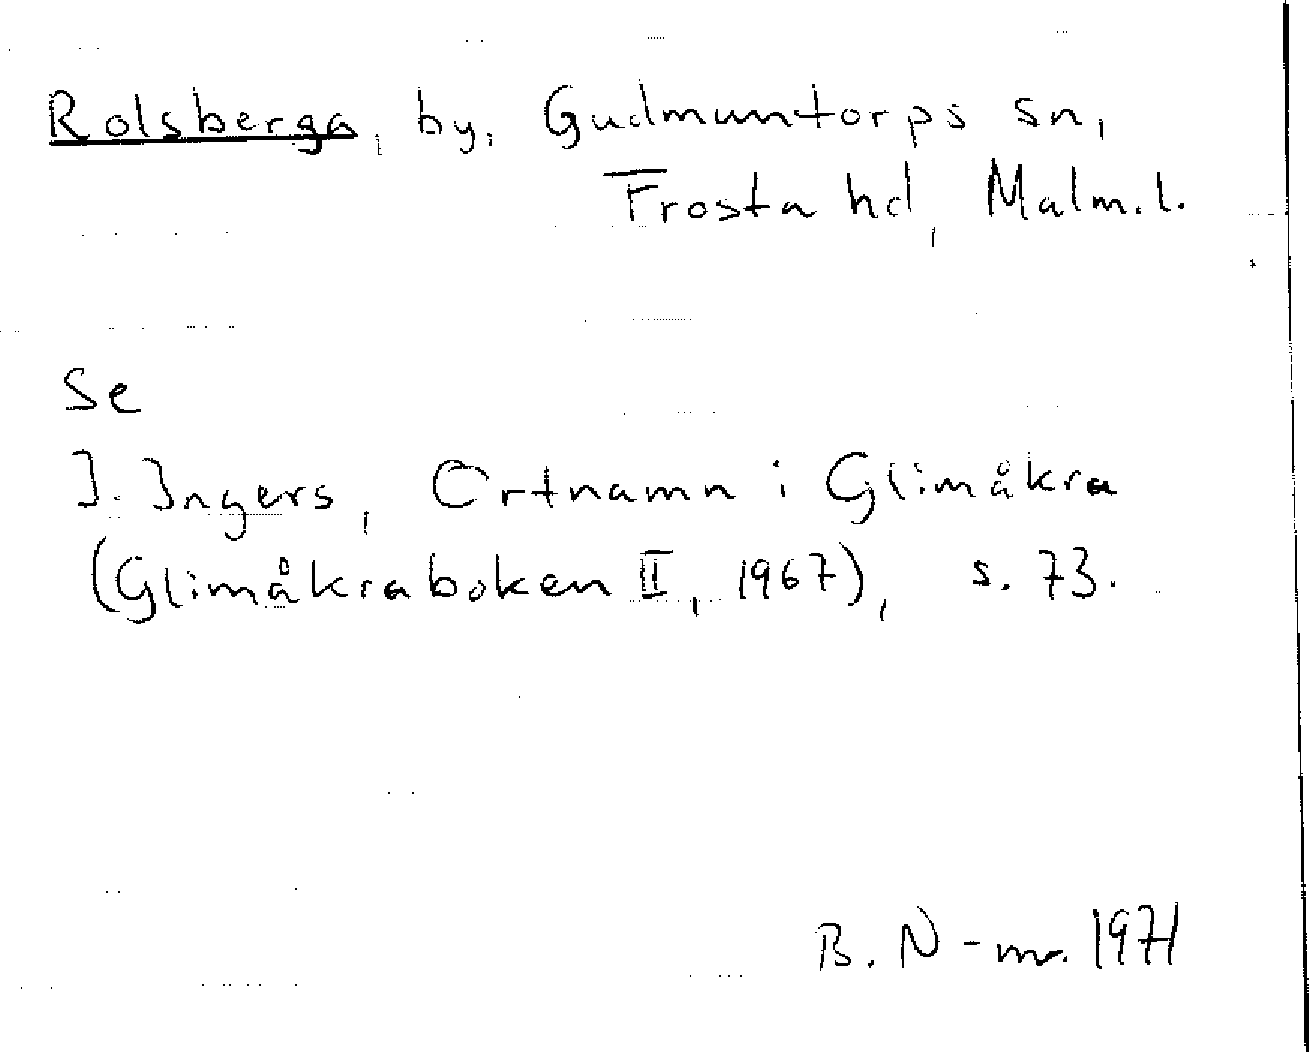 Rolsberga, by, Gudmuntorps sn,
Frosta hd, Malm.l.
Se
I. Ingers, Ortnamn i Glimåkra
(Glimåkraboken II, 1967), s. 73.
B. N-mr. 1971